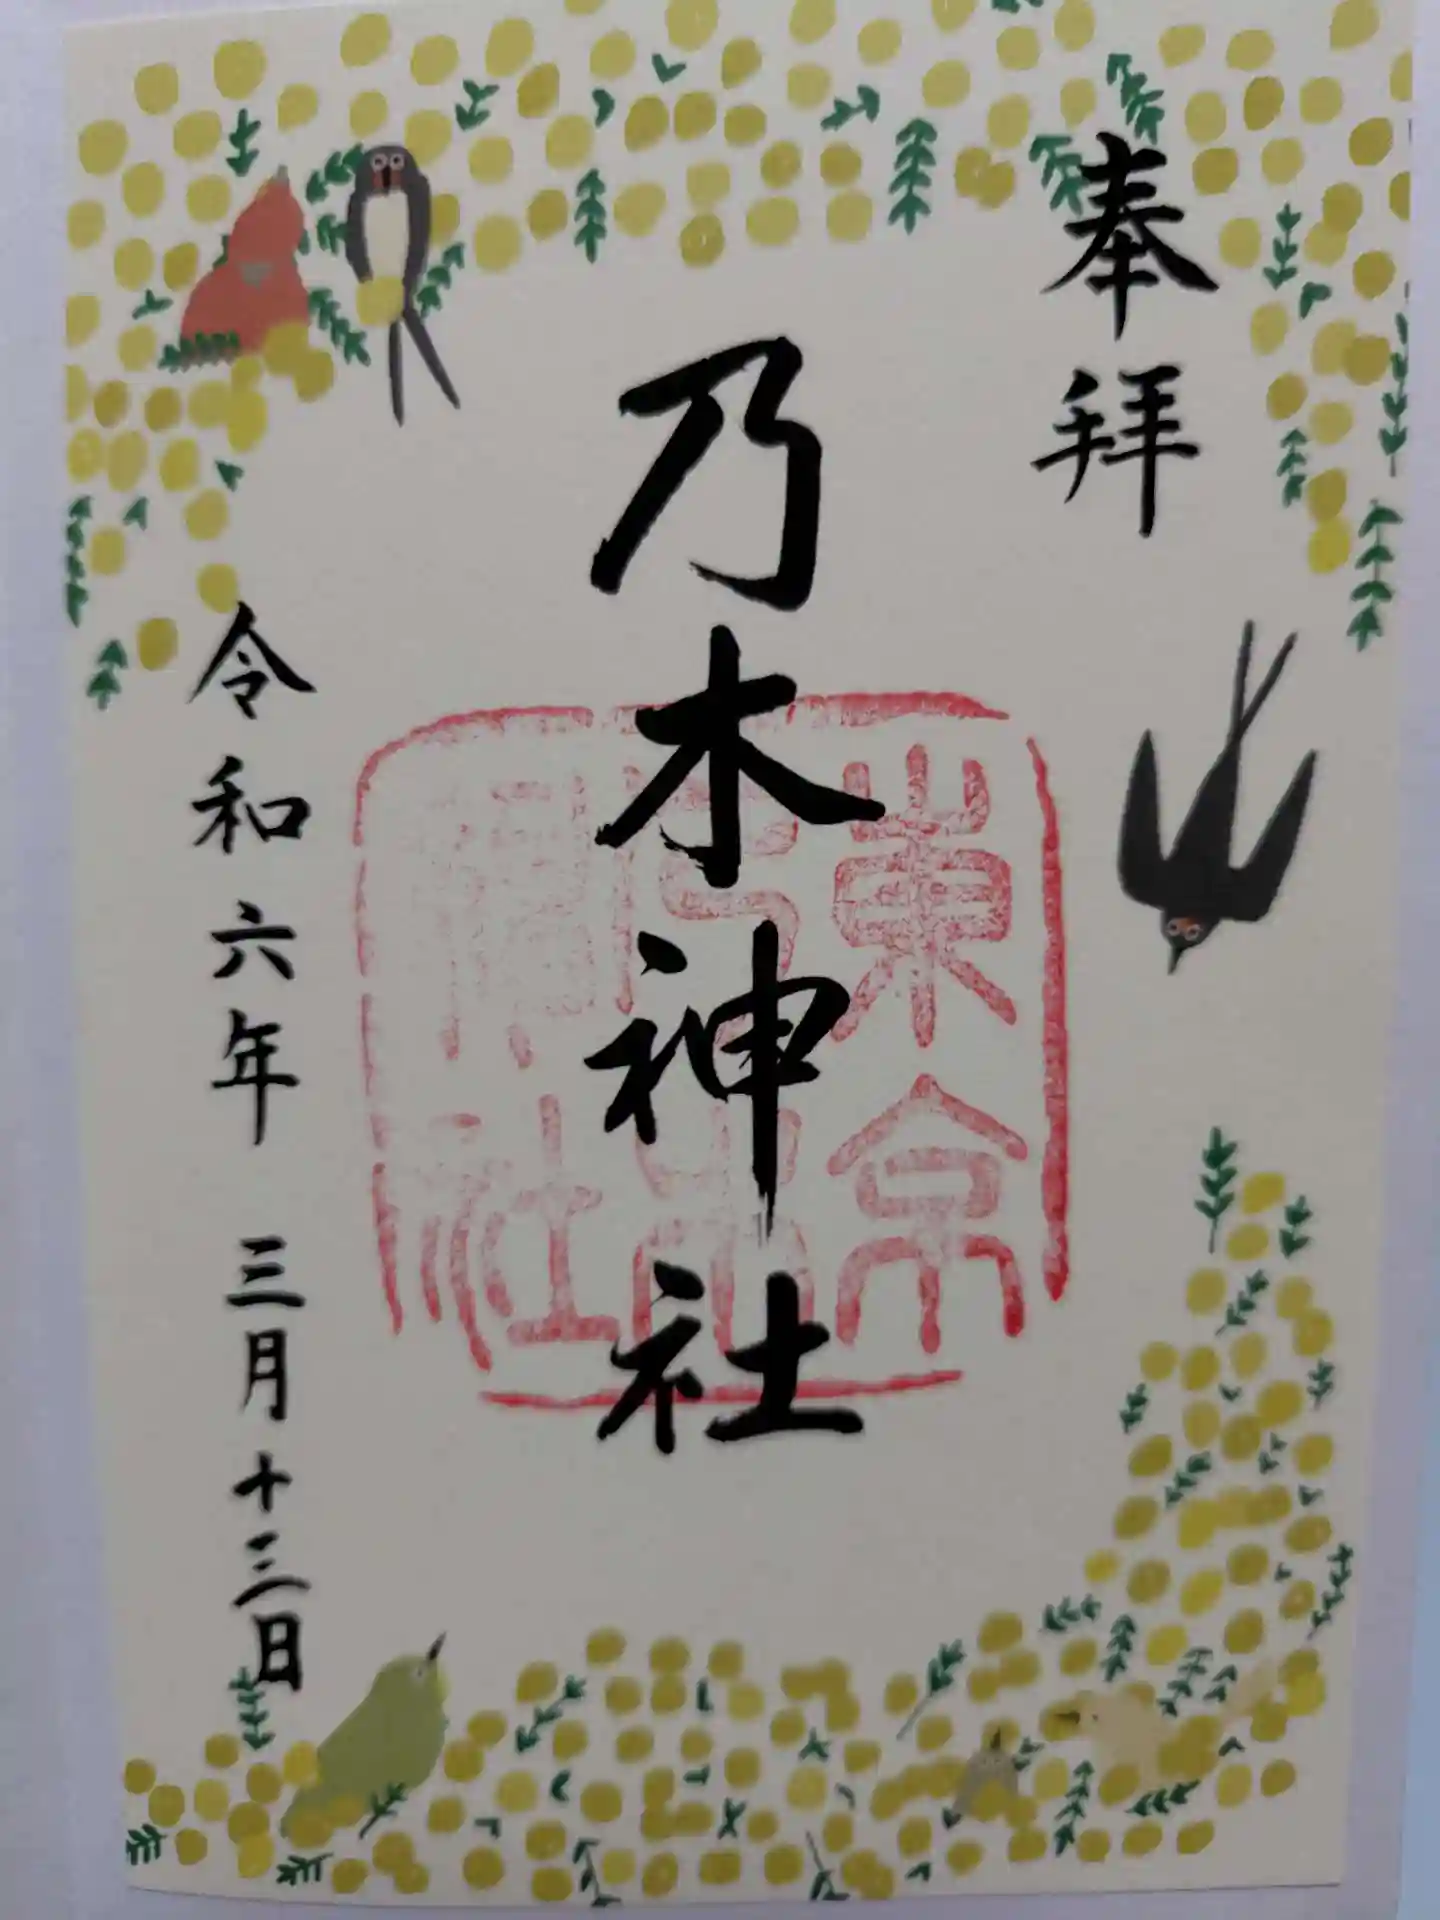 奉拝
乃木神社
東京
乃木
神社
令和六年 三月十三日